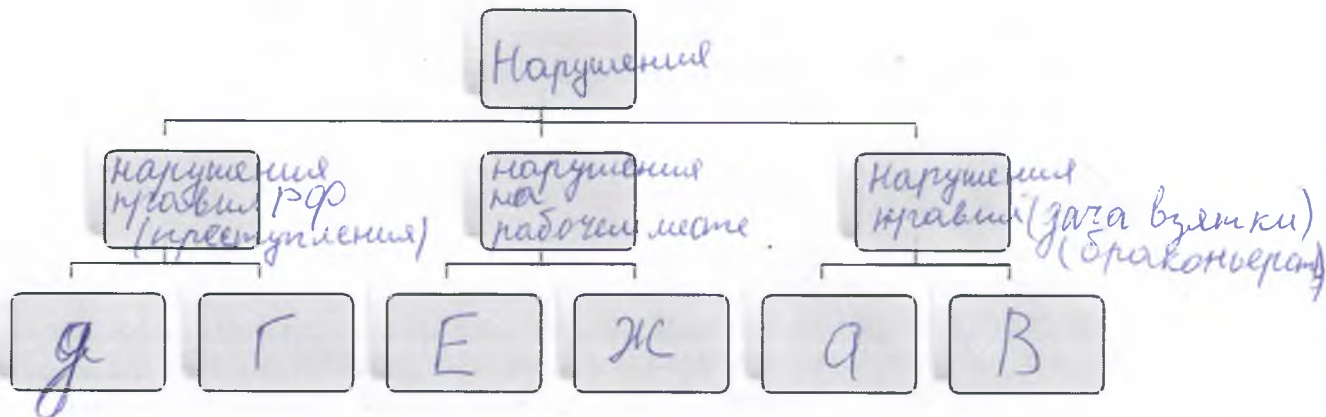 Нарушения
нарушения
правил РФ
(преступления)
нарушения
на
рабочем месте
Нарушения
правил (дача взятки)
(браконьерств)
д
Г
Е
Ж
а
В